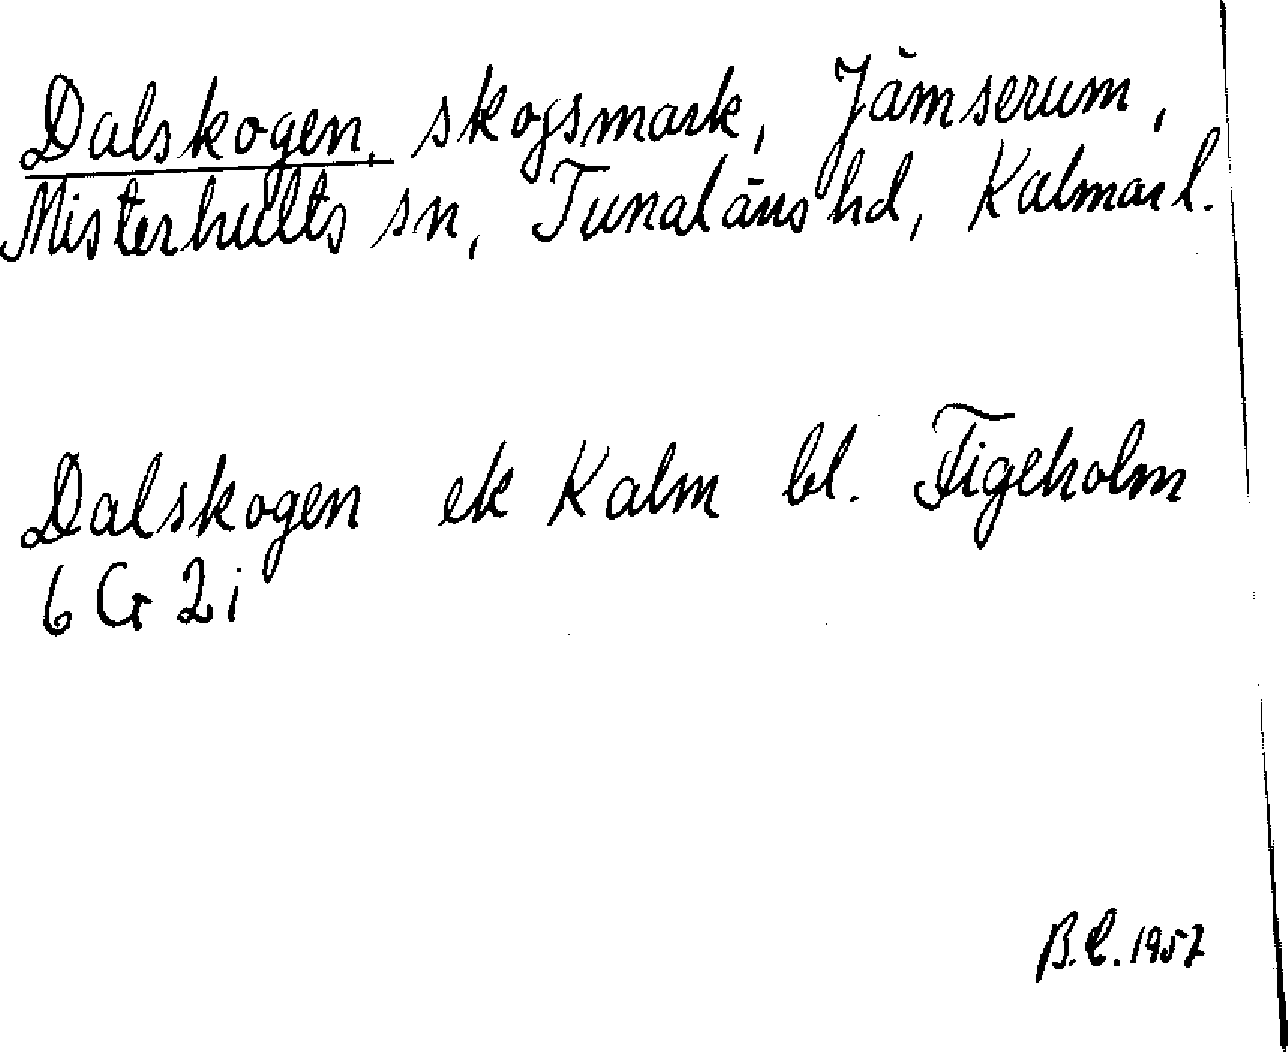 Dalskogen, skogsmark, Jämserum,
Misterhults sn, Tunaläns hd, Kalmar l.
Dalskogen ek Kalm bl. Figeholm
6 G 2 i
B.C. 1957